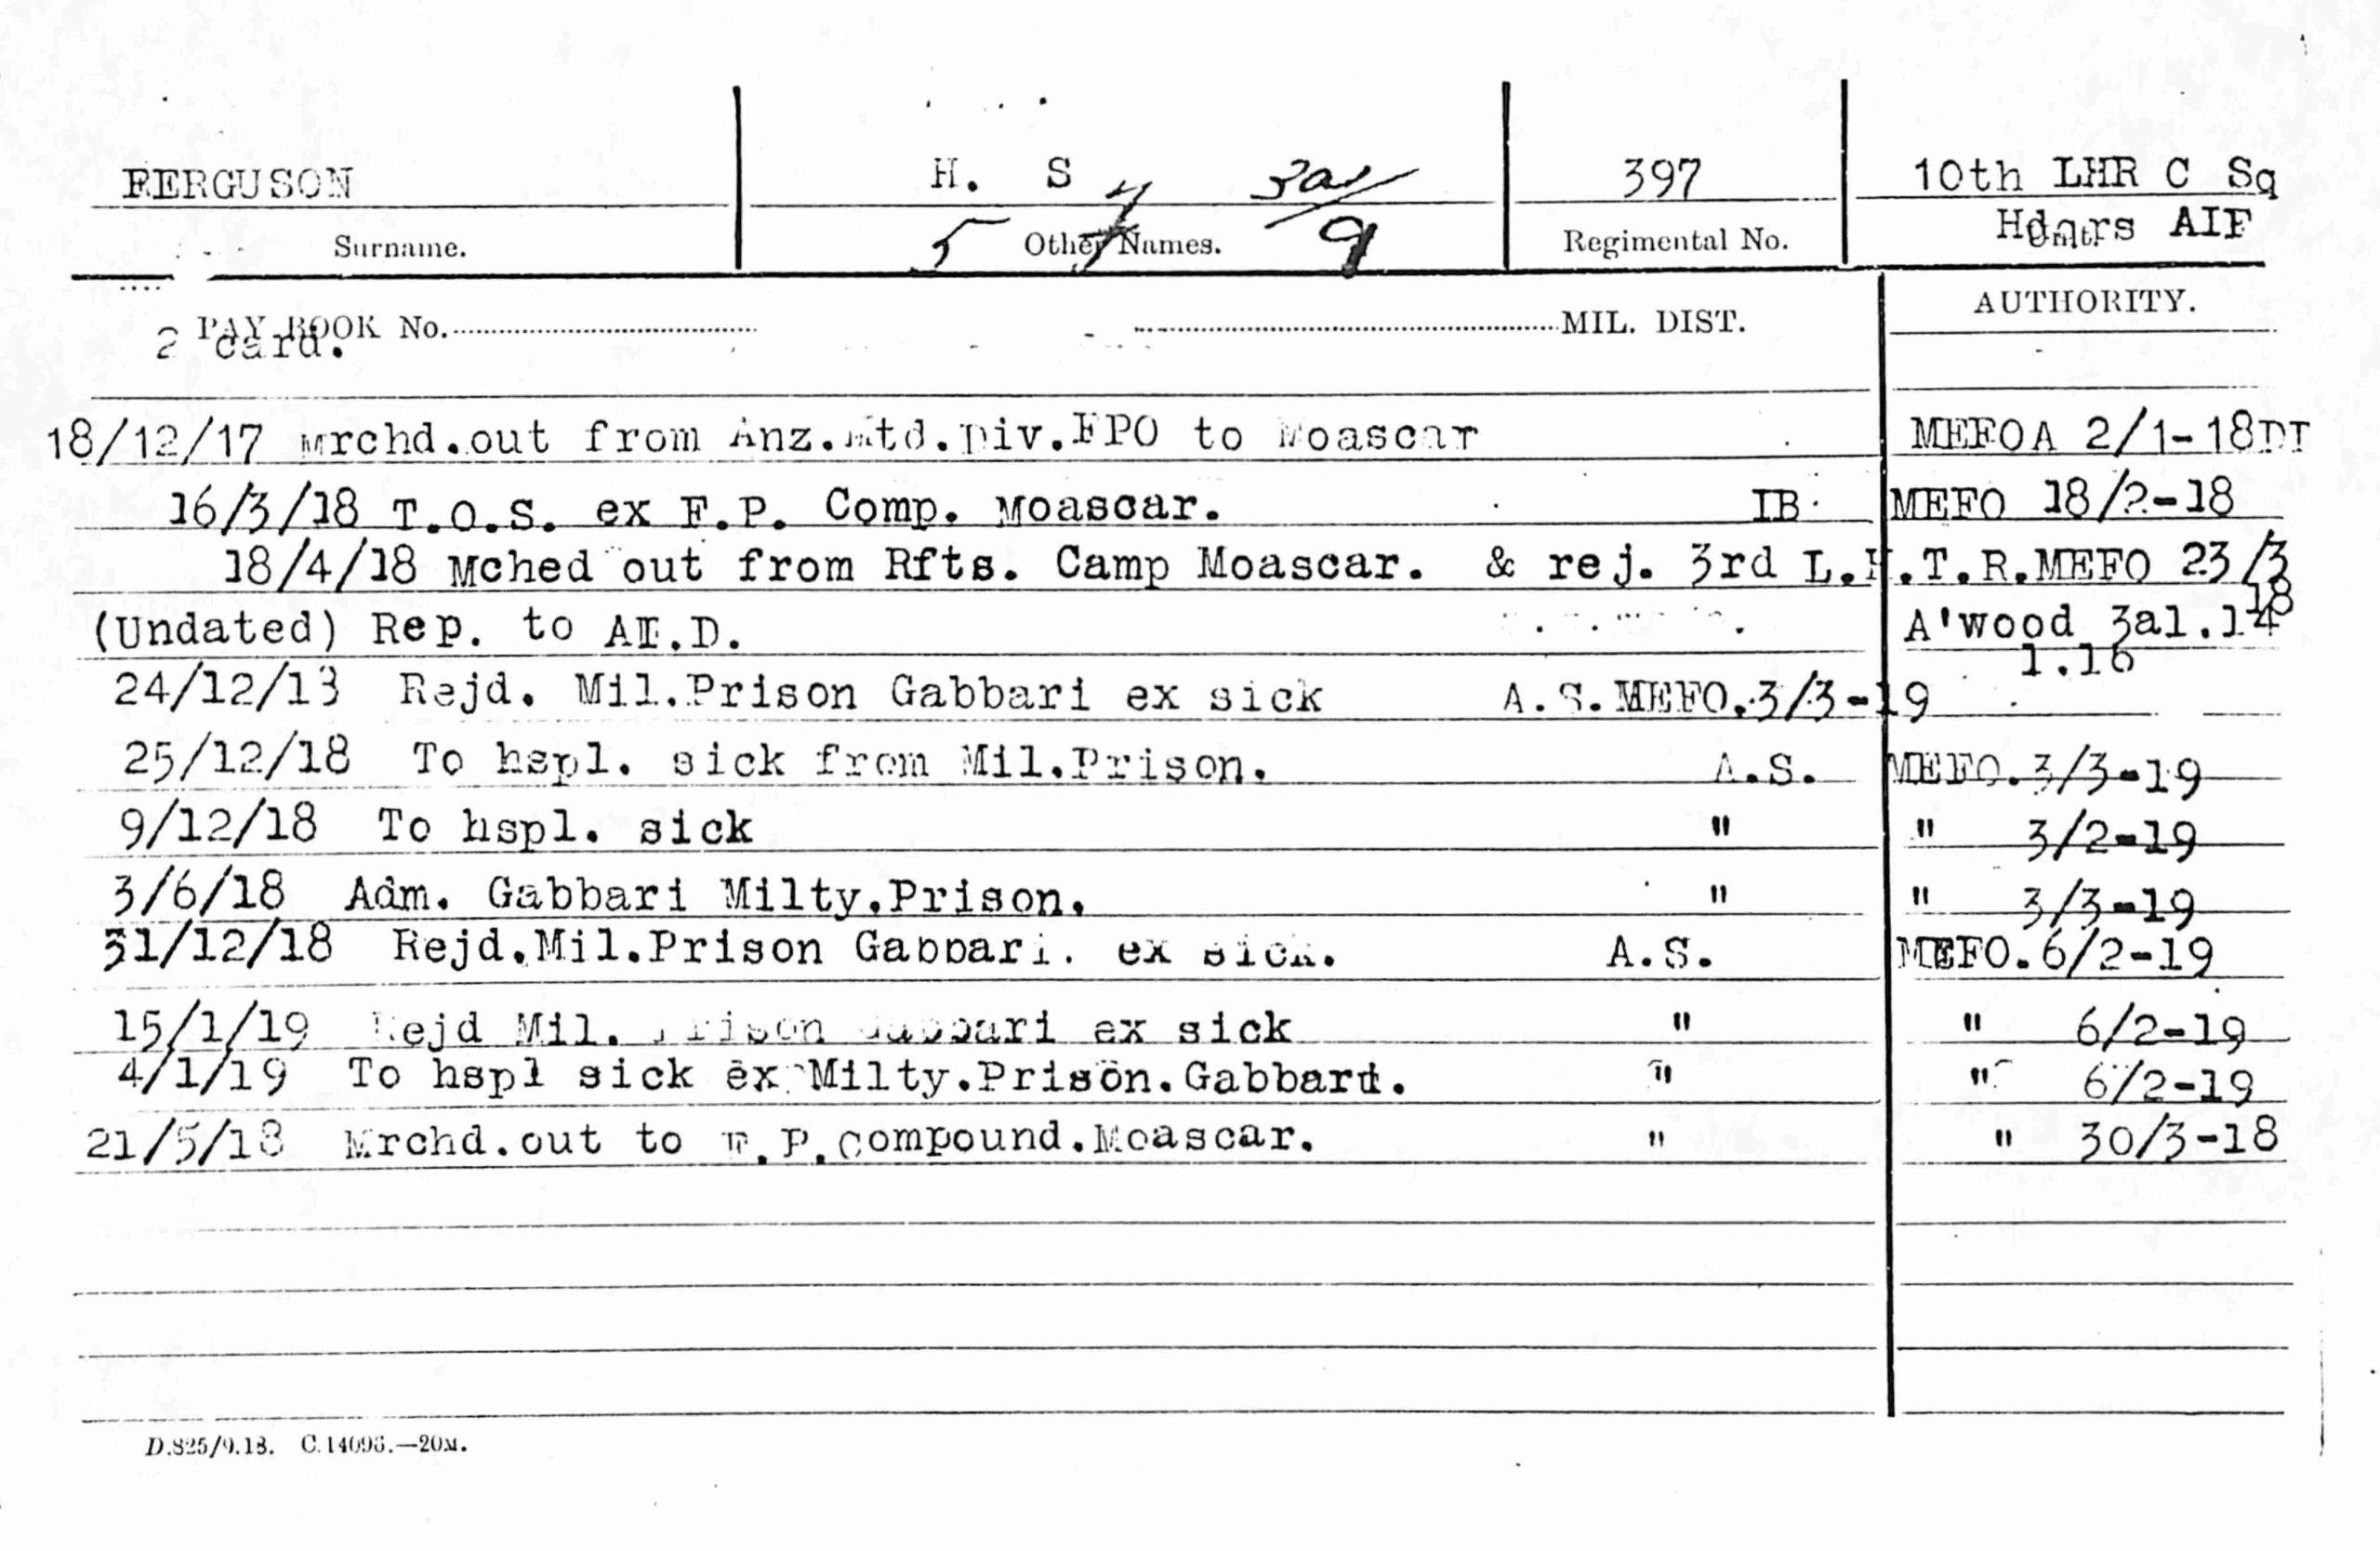 FERGUSON H. S 397 10th LHR C Sq
Surname. Other Names. Regimental No. Hdqtrs AIF
PAY BOOK No. MIL. DIST. AUTHORITY.
2 card.
18/12/17 Mrchd.out from Anz.Mtd.Div.FPO to Moascar MEFOA 2/1-18DT
16/3/18 T.O.S. ex F.P. Comp. Moascar. IB MEFO 18/2-18
18/4/18 Mched out from Rfts. Camp Moascar. & rej. 3rd L.H.T.R.MEFO 23/3
18
(Undated) Rep. to A.D. A'wood 3al.14
1.16
24/12/13 Rejd. Mil.Prison Gabbari ex sick A.S.MEFO.3/3-19
25/12/18 To hspl. sick from Mil.Prison. A.S. MEFO.3/3-19
9/12/18 To hspl. sick " " 3/2-19
3/6/18 Adm. Gabbari Milty.Prison. " " 3/3-19
31/12/18 Rejd.Mil.Prison Gabbari. ex sick. A.S. MEFO.6/2-19
15/1/19 Rejd Mil. Prison Gabbari ex sick " " 6/2-19
4/1/19 To hspl sick ex Milty.Prison.Gabbari. " " 6/2-19
21/5/18 Mrchd.out to F.P.Compound.Moascar. " " 30/3-18
D.825/9.18. C.14096.—20M.